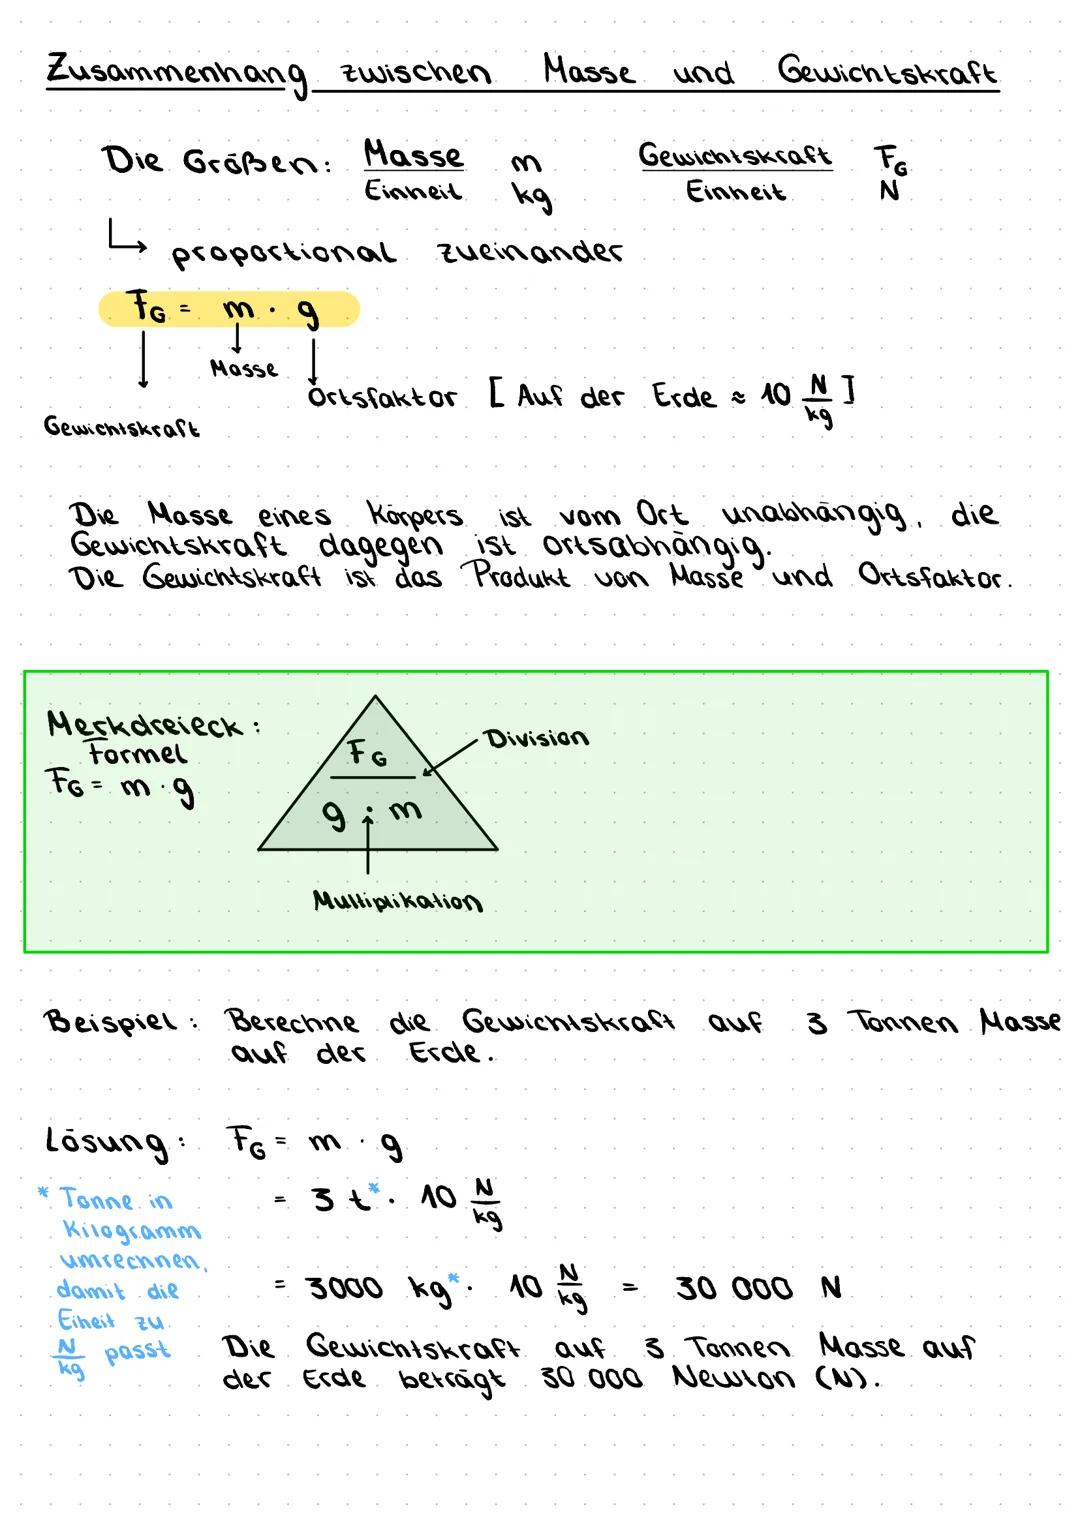 Zusammenhang zwischen Masse und Gewichtskraft
Die Größen: Masse m Gewichtskraft F_G
Einheit kg Einheit N
↳ proportional zueinander
F_G = m · g
Masse
Ortsfaktor [Auf der Erde ≈ 10 N/kg]
Gewichtskraft
Die Masse eines Körpers ist vom Ort unabhängig, die
Gewichtskraft dagegen ist ortsabhängig.
Die Gewichtskraft ist das Produkt von Masse und Ortsfaktor.
Merkdreieck:
Formel
F_G = m · g
F_G
g · m
Division
Multiplikation
Beispiel: Berechne die Gewichtskraft auf 3 Tonnen Masse
auf der Erde.
Lösung: F_G = m · g
= 3 t* · 10 N/kg
= 3000 kg* · 10 N/kg = 30 000 N
* Tonne in
Kilogramm
umrechnen,
damit die
Eiheit zu
N/kg passt
Die Gewichtskraft auf 3 Tonnen Masse auf
der Erde beträgt 30 000 Newton (N).